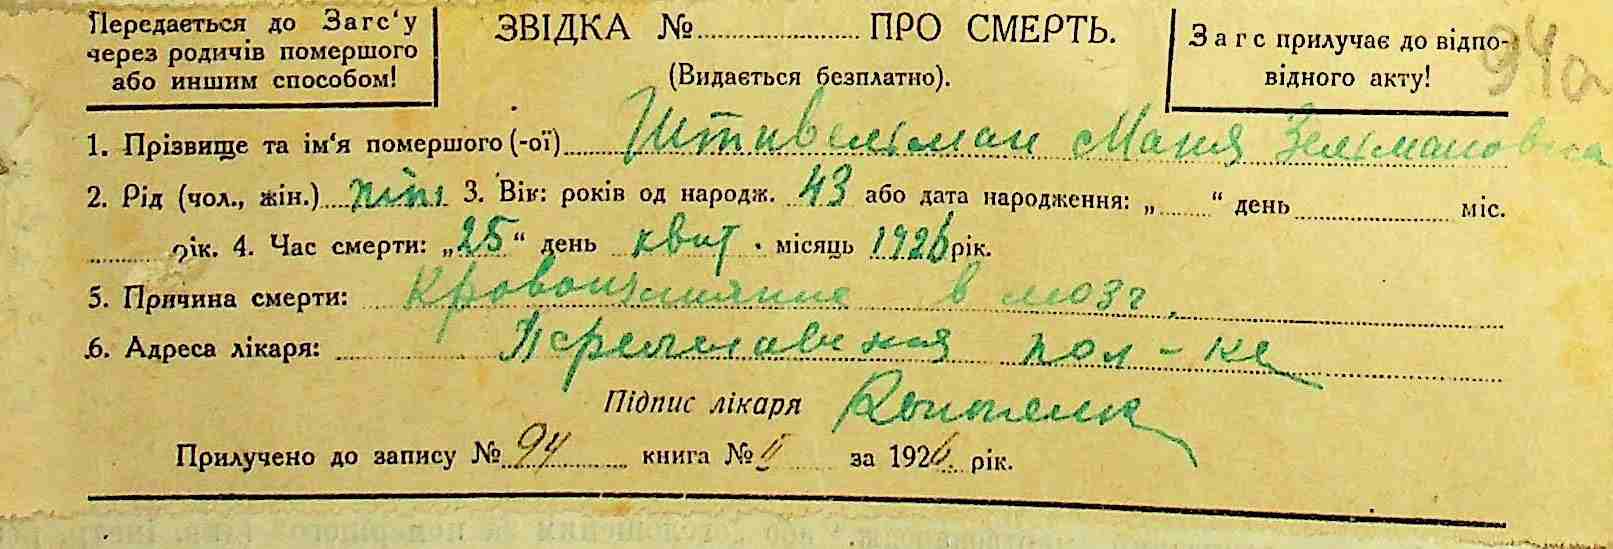 Передається до Загс‘у
через родичів помершого
або иншим способом!
ЗВІДКА № ПРО СМЕРТЬ.
(Видається безплатно).
Загс прилучає до відпо-
відного акту!
94а
1. Прізвище та ім‘я помершого (-ої) Штивельман Маня Зельмановна
2. Рід (чол., жін.) 3. Вік: років од народж. 43 або дата народження: „ “ день міс.
рік. 4. Час смерти: „25“ день квит. місяць 1926 рік.
5. Причина смерти: Кровоизлияние в мозг.
6. Адреса лікаря: пол-ка
Підпис лікаря
Прилучено до запису № 94 книга № II за 1926 рік.